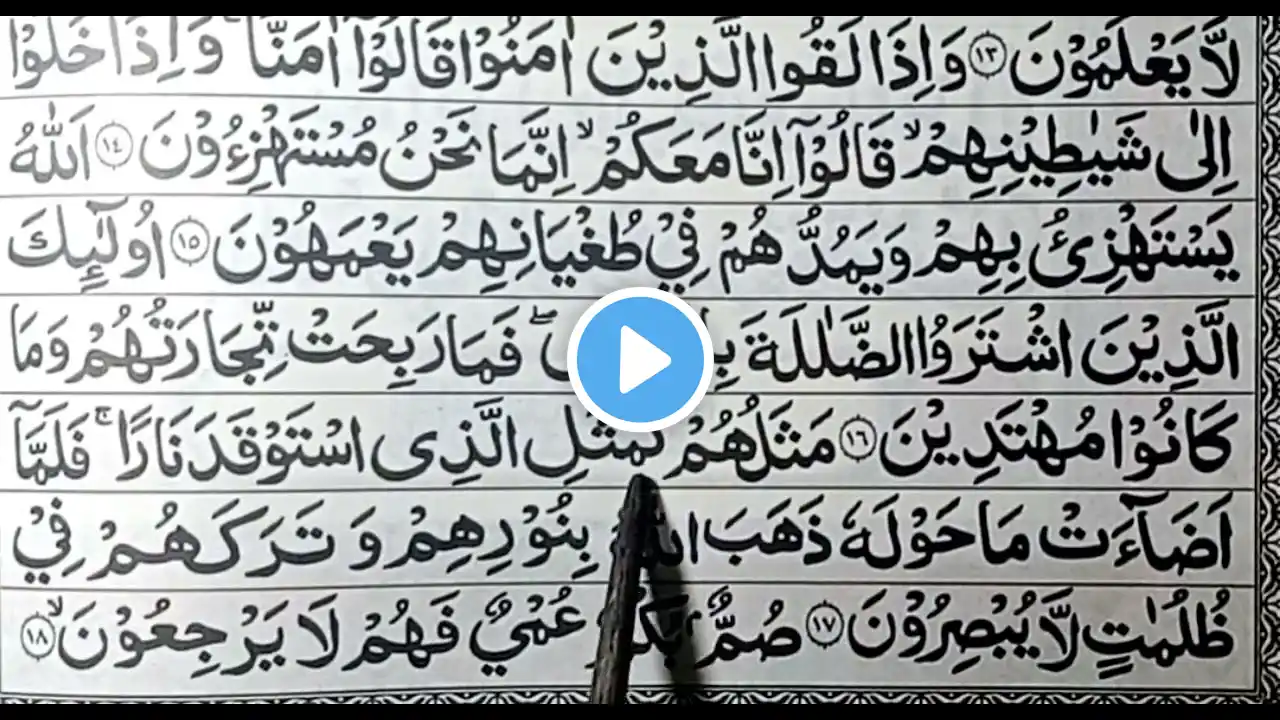 لَّا يَعْلَمُوْنَ ۝١٣ وَاِذَا لَقُوا الَّذِيْنَ اٰمَنُوْا قَالُوْٓا اٰمَنَّا ۚ وَاِذَا خَلَوْا
اِلٰى شَيٰطِيْنِهِمْ ۙ قَالُوْٓا اِنَّا مَعَكُمْ ۙ اِنَّمَا نَحْنُ مُسْتَهْزِءُوْنَ ۝١٤ اَللّٰهُ
يَسْتَهْزِئُ بِهِمْ وَيَمُدُّهُمْ فِيْ طُغْيَانِهِمْ يَعْمَهُوْنَ ۝١٥ اُولٰٓئِكَ
الَّذِيْنَ اشْتَرَوُا الضَّلٰلَةَ فَمَا رَبِحَتْ تِّجَارَتُهُمْ وَمَا
كَانُوْا مُهْتَدِيْنَ ۝١٦ مَثَلُهُمْ كَمَثَلِ الَّذِى اسْتَوْقَدَ نَارًا ۚ فَلَمَّآ
اَضَآءَتْ مَا حَوْلَهٗ ذَهَبَ اللّٰهُ بِنُوْرِهِمْ وَتَرَكَهُمْ فِيْ
ظُلُمٰتٍ لَّا يُبْصِرُوْنَ ۝١٧ صُمٌّۢ بُكْمٌ عُمْيٌ فَهُمْ لَا يَرْجِعُوْنَ ۙ ۝١٨